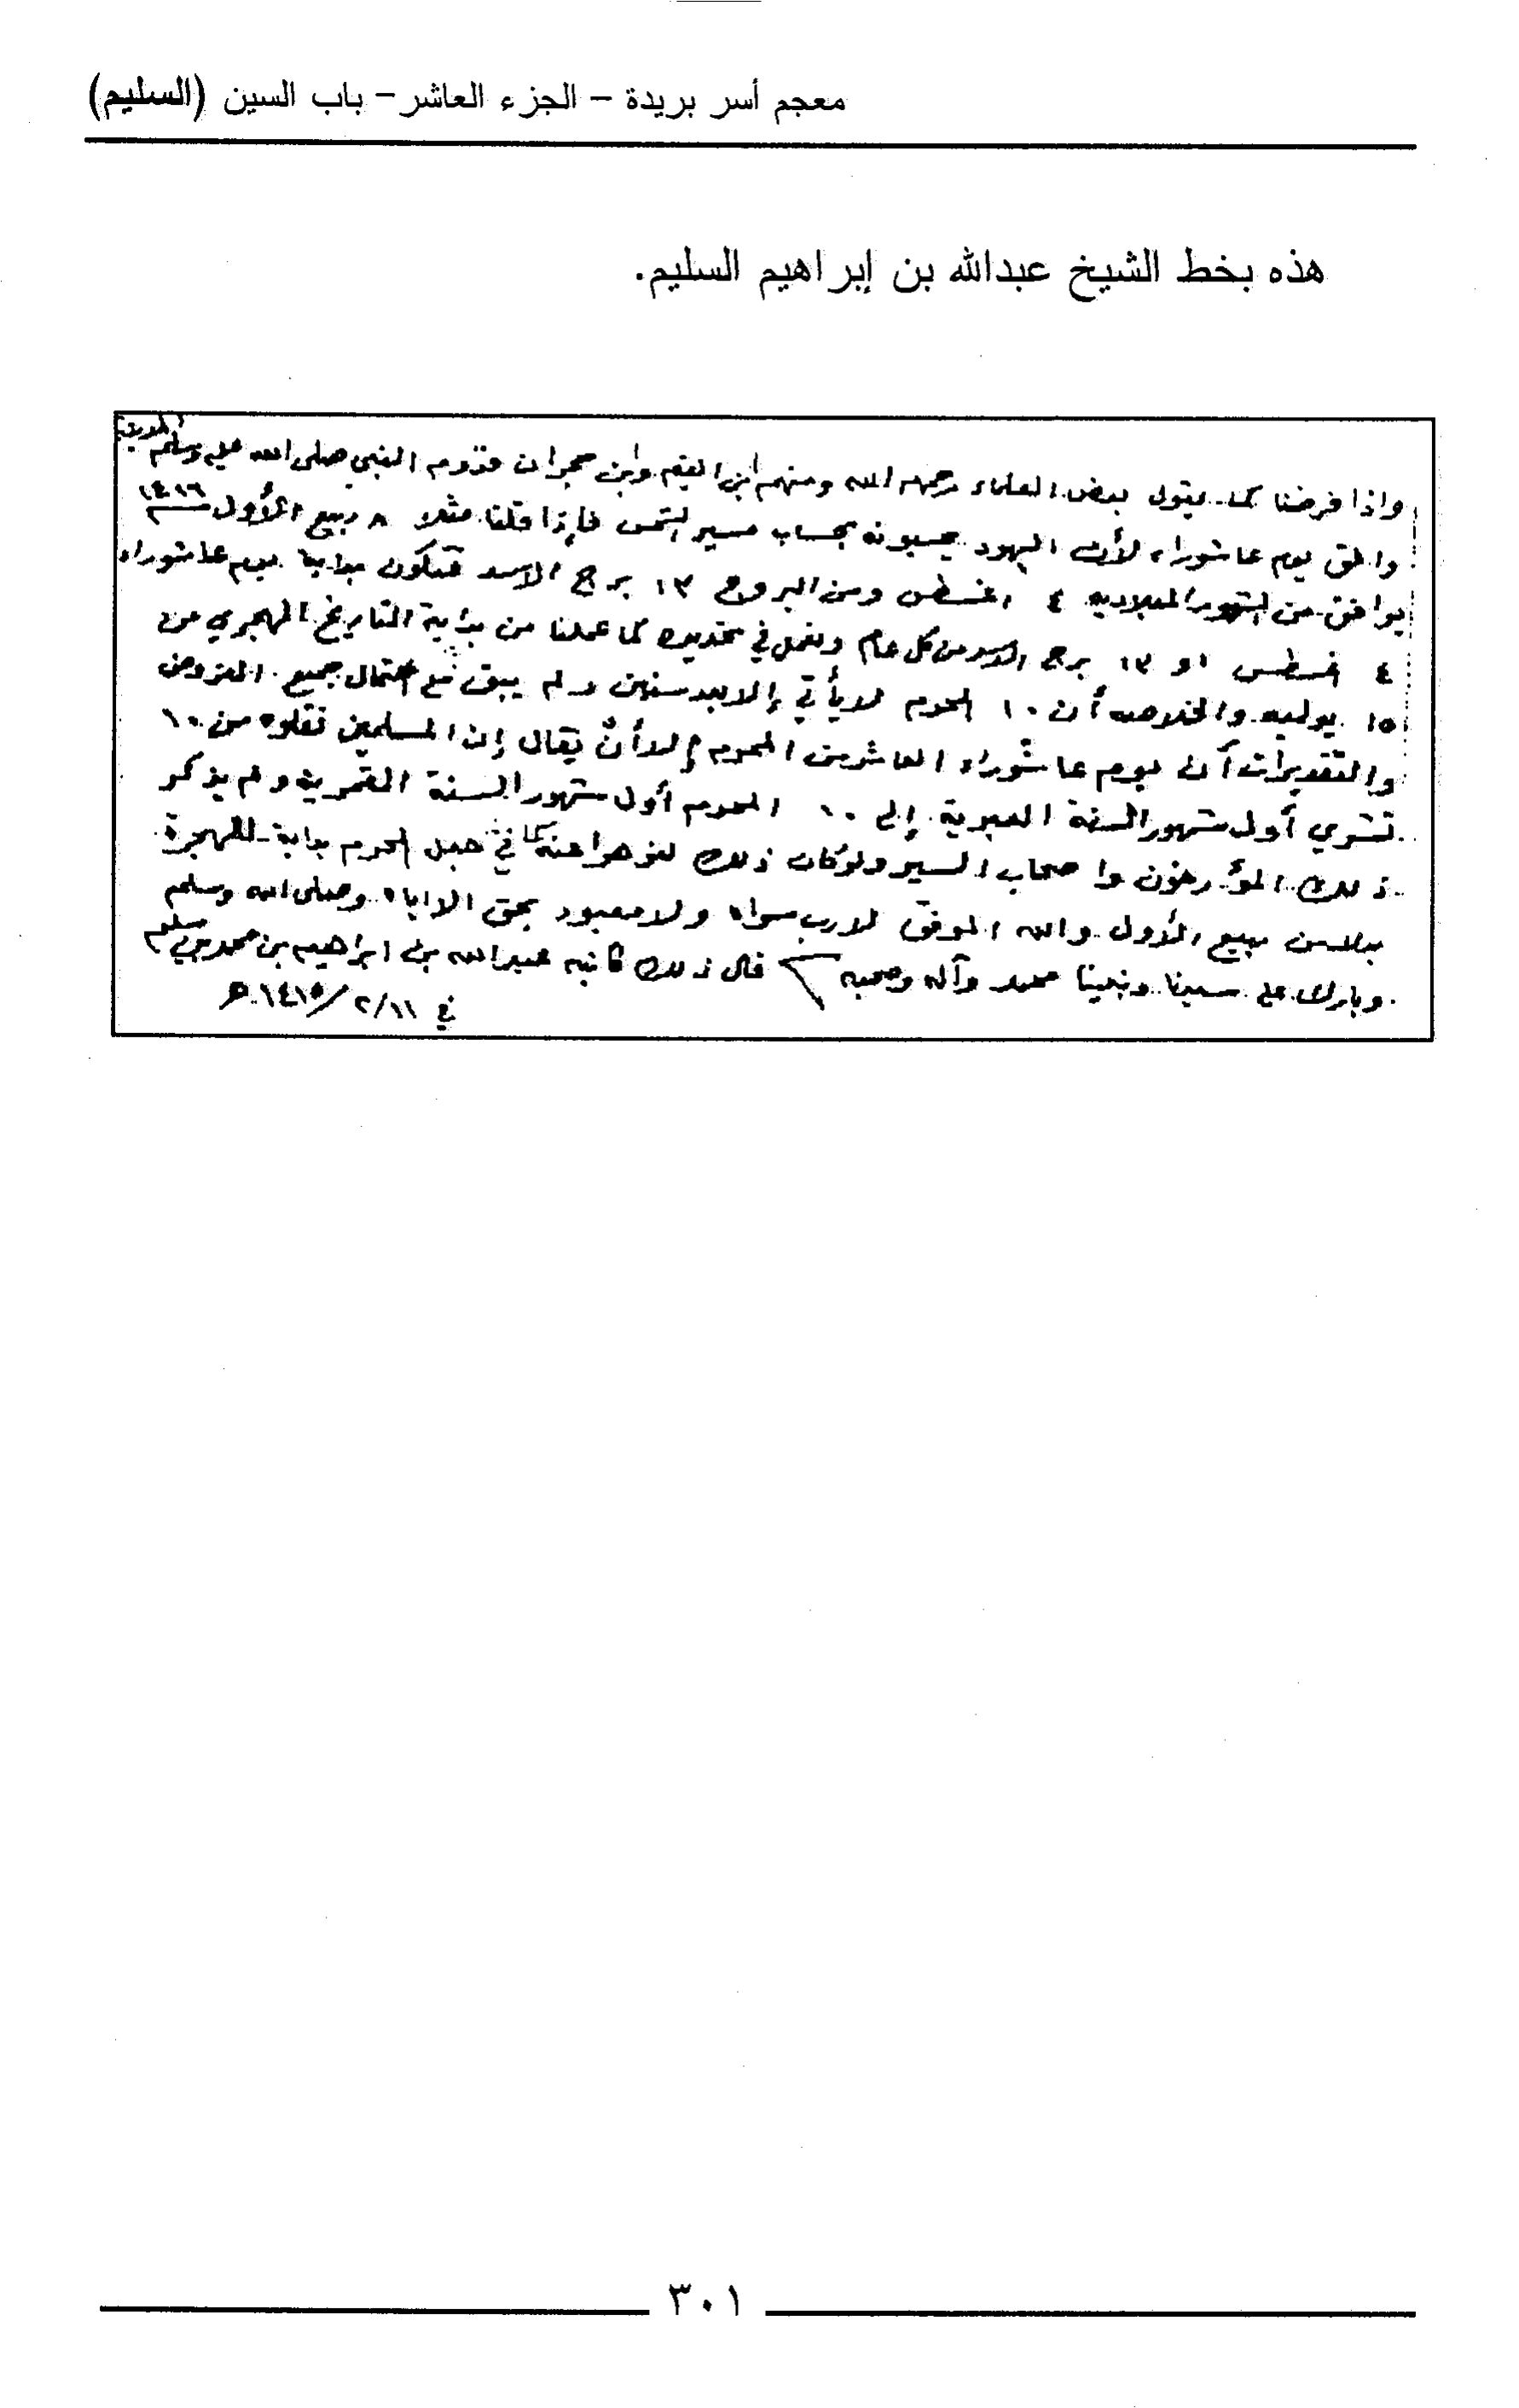 معجم أسر بريدة – الجزء العاشر – باب السين (السليم)
هذه بخط الشيخ عبدالله بن إبراهيم السليم.
المدينة
واذا فرضنا كما يقول بعض العلماء رحمهم الله ومنهم ابن القيم وابن حجر ان قدوم النبي صلى الله عليه وسلم
وافق يوم عاشوراء لأن اليهود يحسبونه بحساب مسير الشمس فإذا قلنا مثلا ٨ ربيع الأول ١٤١٦
يوافق من الشهور الميلاديه ٤ اغسطس ومن البروج ١٣ برج الاسد فتكون بداية يوم عاشوراء
٤ اغسطس او ١٣ برج الاسد من كل عام ونعمل في تحديده كما عملنا من بداية التاريخ الهجري من
١٥ يوليه والخلاصه أن ١٠ المحرم لا يأتي إلا بعد سنين ولم يبق مع احتمال جميع الفروض
والتقديرات أن يوم عاشوراء العاشر من المحرم إلا أن يقال إن المسلمين نقلوه من ١٠
تشري أول شهور السنة العبرية إلى ١٠ المحرم أول شهور السنة القمرية ولم يذكر
ذلك المؤرخون واصحاب السير ولو كان ذلك لنوهوا عنه كما في جعل المحرم بداية للهجرة
بدلا من ربيع الأول والله الموفق لا رب سواه ولا معبود بحق الا اياه وصلى الله وسلم
وبارك على سيدنا ونبينا محمد وآله وصحبه قال ذلك كاتبه عبدالله بن ابراهيم بن محمد بن سليم
في ٢/١١/ ١٤١٥هـ
٣٠١